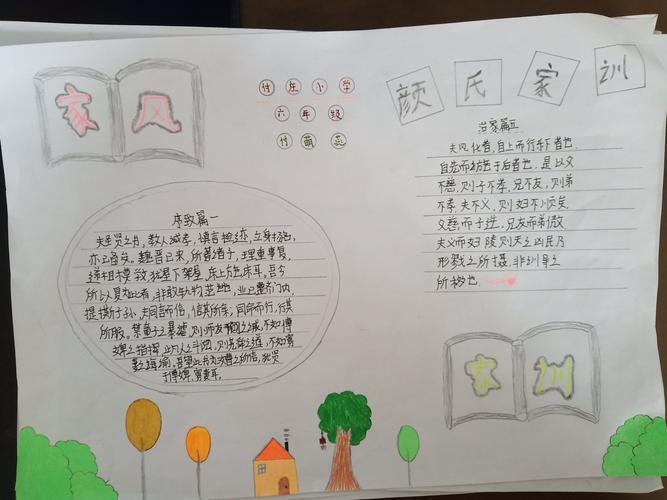 家风
付庄小学
六年级
付萌蕊
颜氏家训
治家篇五
夫风化者,自上而行于下者也,
自先而施于后者也。是以父
不慈,则子不孝,兄不友,则弟
不恭,夫不义,则妇不顺矣。
父慈而子逆,兄友而弟傲,
夫义而妇陵,则天之凶民,乃
形戮之所摄,非训导之
所移也。
序致篇一
夫圣贤之书,教人诚孝,慎言检迹,立身扬名,
亦已备矣。魏晋已来,所著诸子,理重事复,
递相模敩,犹屋下架屋,床上施床耳。吾今
所以复为此者,非敢轨物范世也,业已整齐门内,
提撕子孙。夫同言而信,信其所亲;同命而行,行其
所服。禁童子之暴谑,则师友之诫,不如傅
婢之指挥;止凡人之斗阋,则尧舜之道,不如寡
妻之诲谕。吾望此书为汝曹之所信,犹贤
于傅婢寡妻耳。
家训